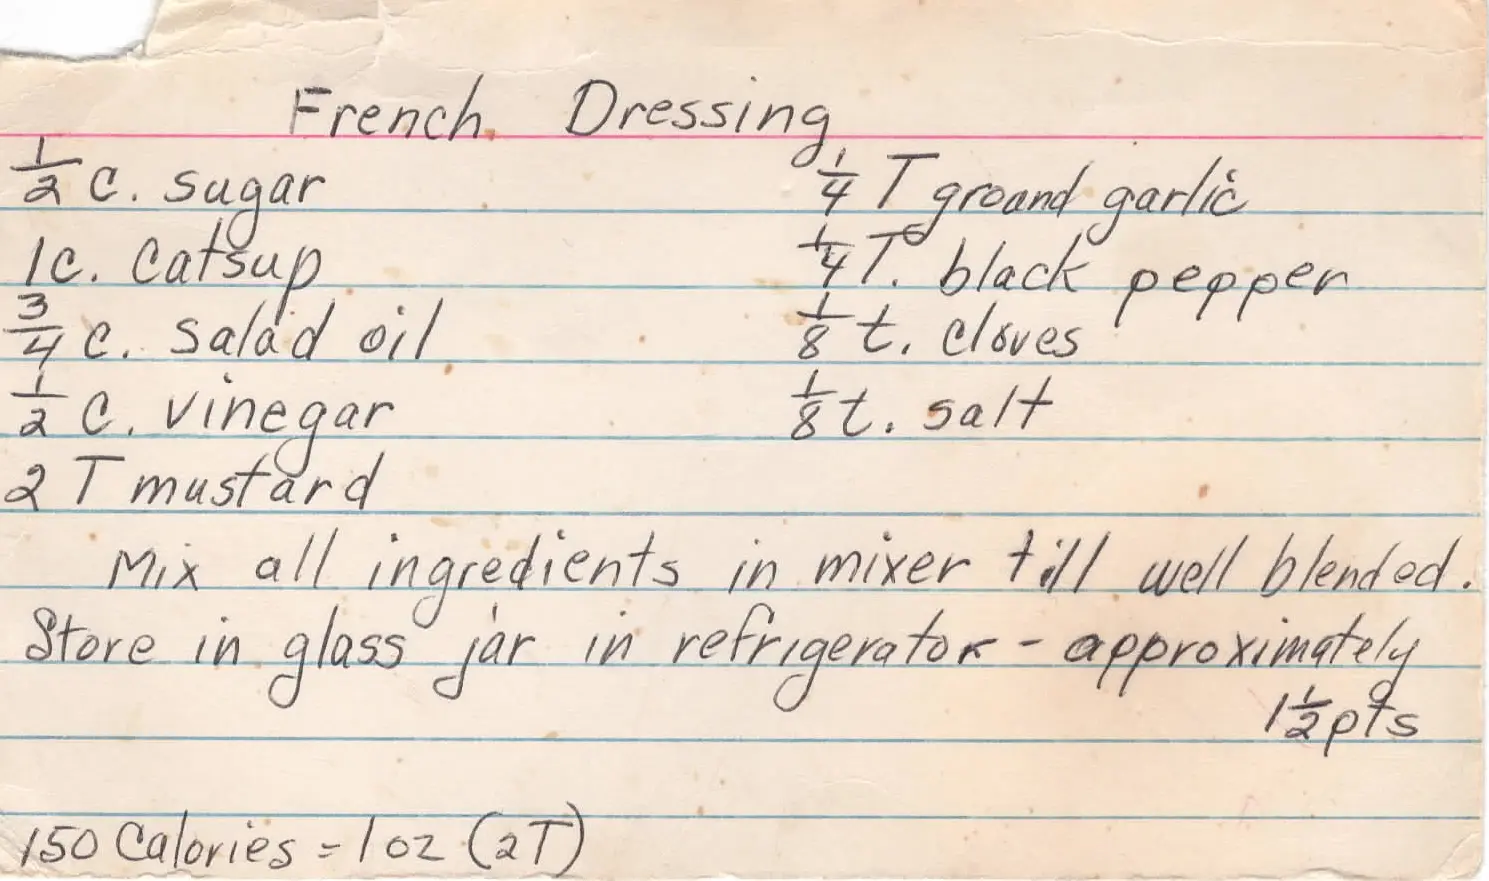 French Dressing
1/2 c. sugar
1c. catsup
3/4 c. salad oil
1/2 c. vinegar
2 T mustard
1/4 T groand garlic
1/4 T. black pepper
1/8 t. cloves
1/8 t. salt
Mix all ingredients in mixer till well blended.
Store in glass jar in refrigerator - approximately
1 1/2 pts
150 Calories = 1 oz (2T)